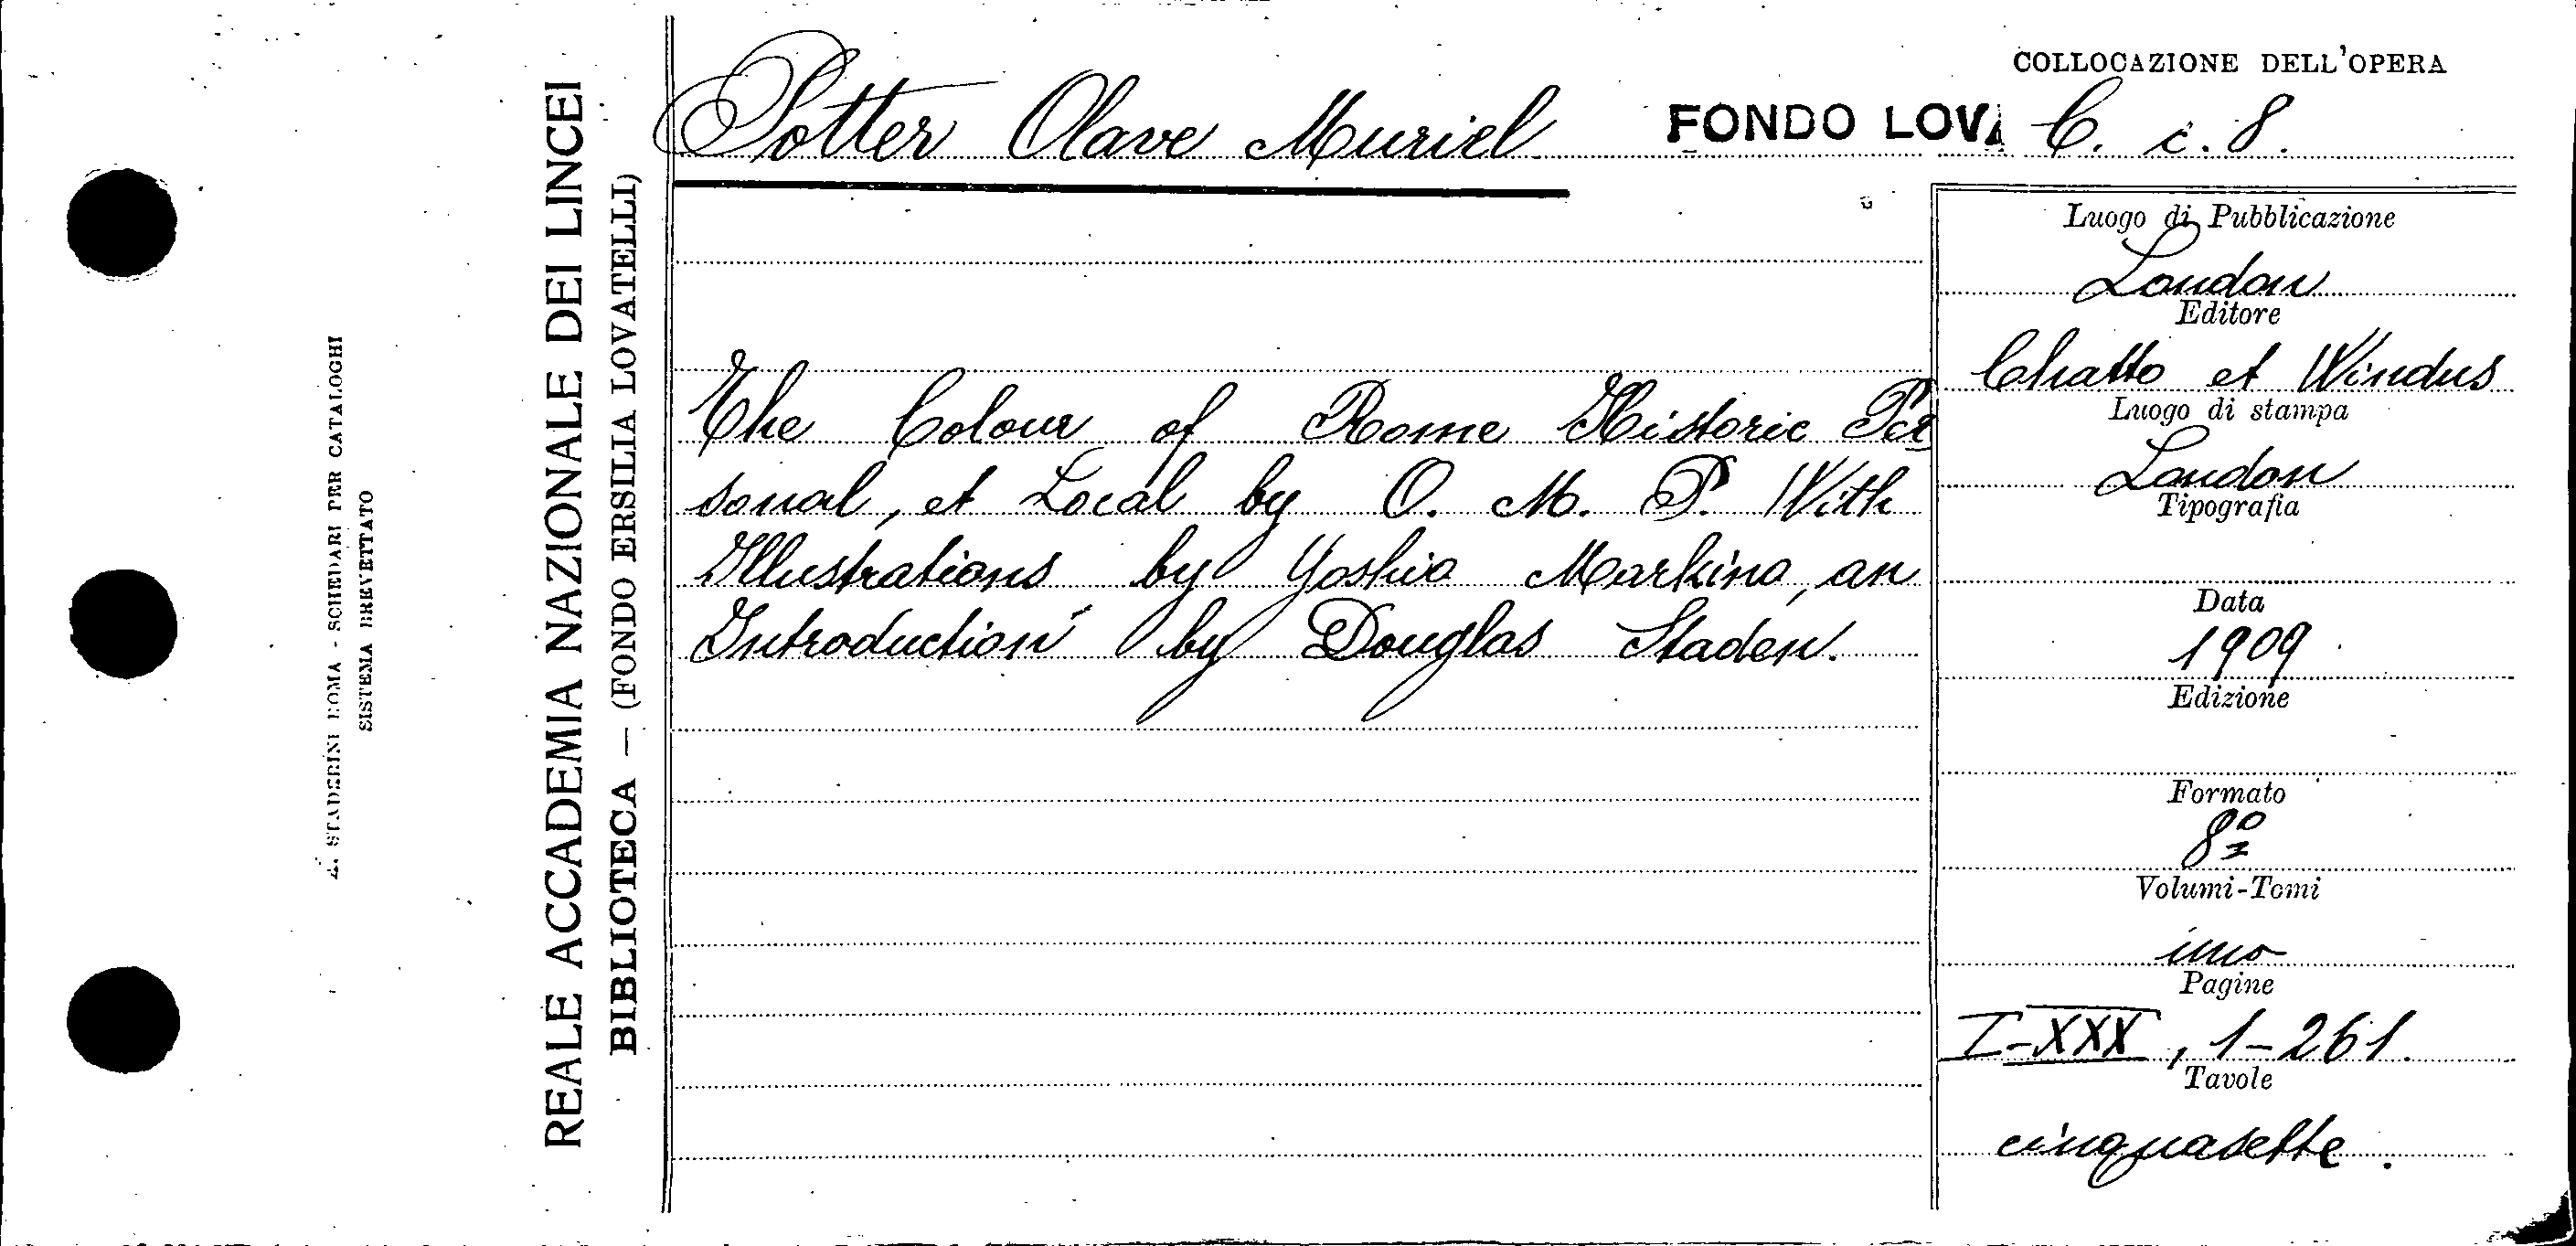 COLLOCAZIONE DELL'OPERA
Potter Olave Muriel FONDO LOVA C. c. 8.
The Colour of Rome Historic Per
sonal, et Local by O. M. P. With
Illustrations by Yoshio Markino, an
Introduction by Douglas Staden.
Luogo di Pubblicazione
London
Editore
Chatto et Windus
Luogo di stampa
London
Tipografia
Data
1909
Edizione
Formato
8º
Volumi-Tomi
uno
Pagine
I-XXX, 1-261.
Tavole
cinquasette.
REALE ACCADEMIA NAZIONALE DEI LINCEI
BIBLIOTECA — (FONDO ERSILIA LOVATELLI)
A. STADERINI ROMA - SCHEDARI PER CATALOGHI
SISTEMA BREVETTATO